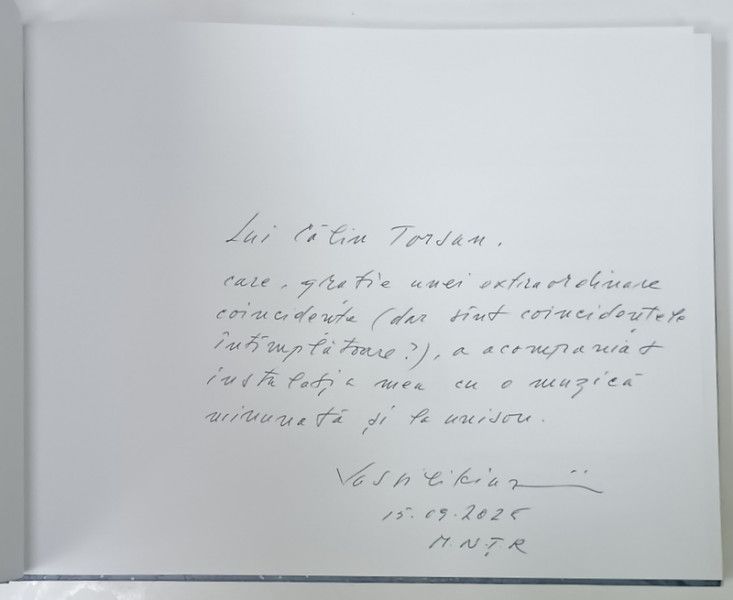 Lui Călin Torsan,
care, grație unei extraordinare
coincidențe (dar sînt coincidențele
întîmplătoare?), a acompaniat
instalația mea cu o muzică
minunată și la unison.
15.09.2025
M.N.Ț.R